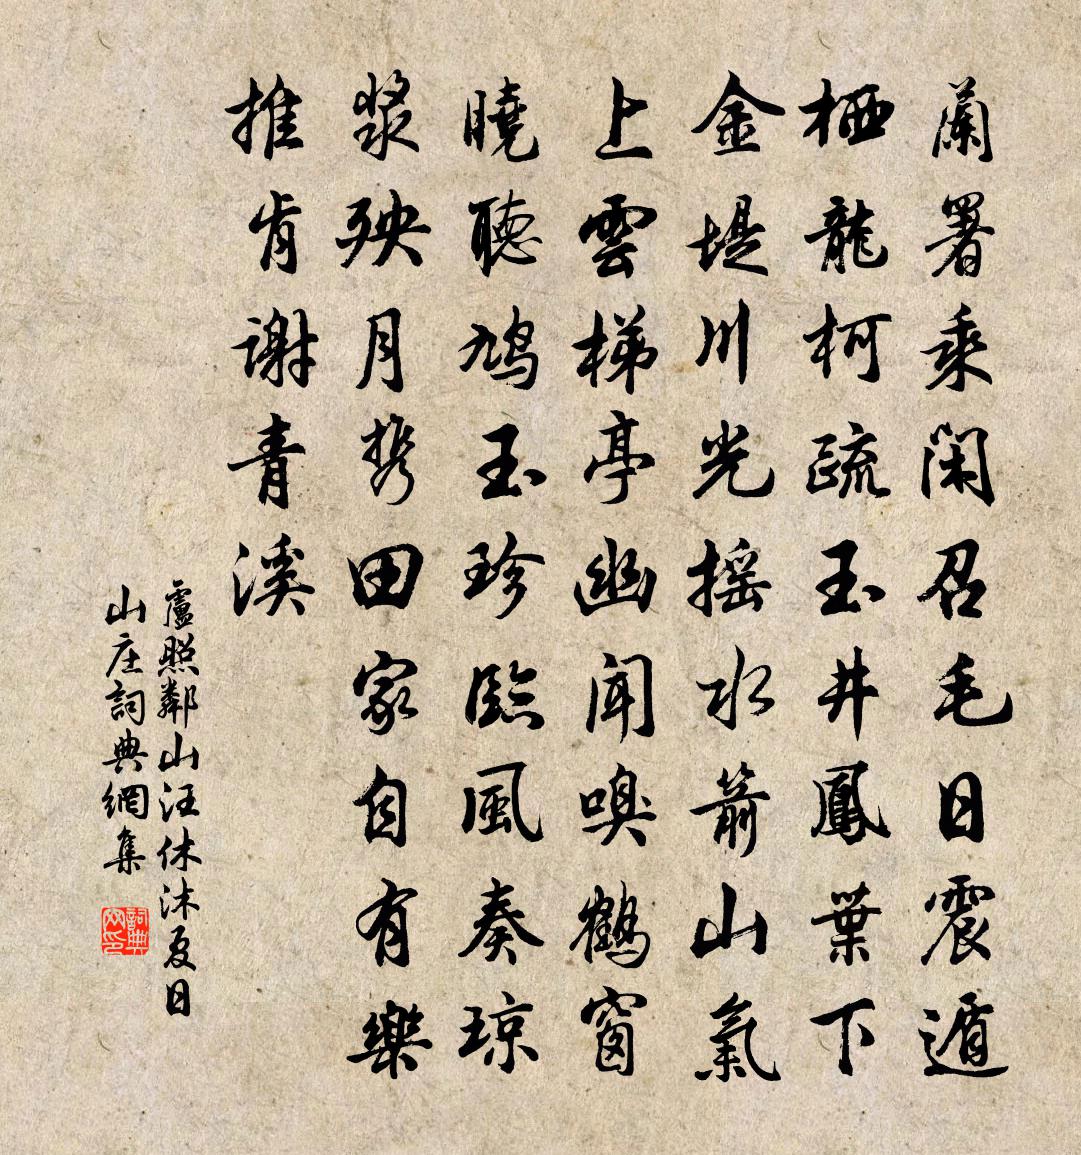 蘭署乘閑召毛日震遁
栖龍柯疏玉井鳳葉下
金堤川光摇水箭山氣
上雲梯亭幽聞嗅鶴窗
曉聽鳩玉珍臨風奏琼
漿殃月携田家自有樂
推肯謝青溪
盧照鄰山汪休沐夏日
山庄詞典網集
詞典网印